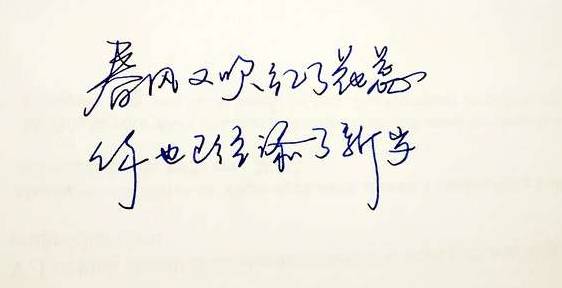 春风又吹红了花蕊
你也已经添了新岁